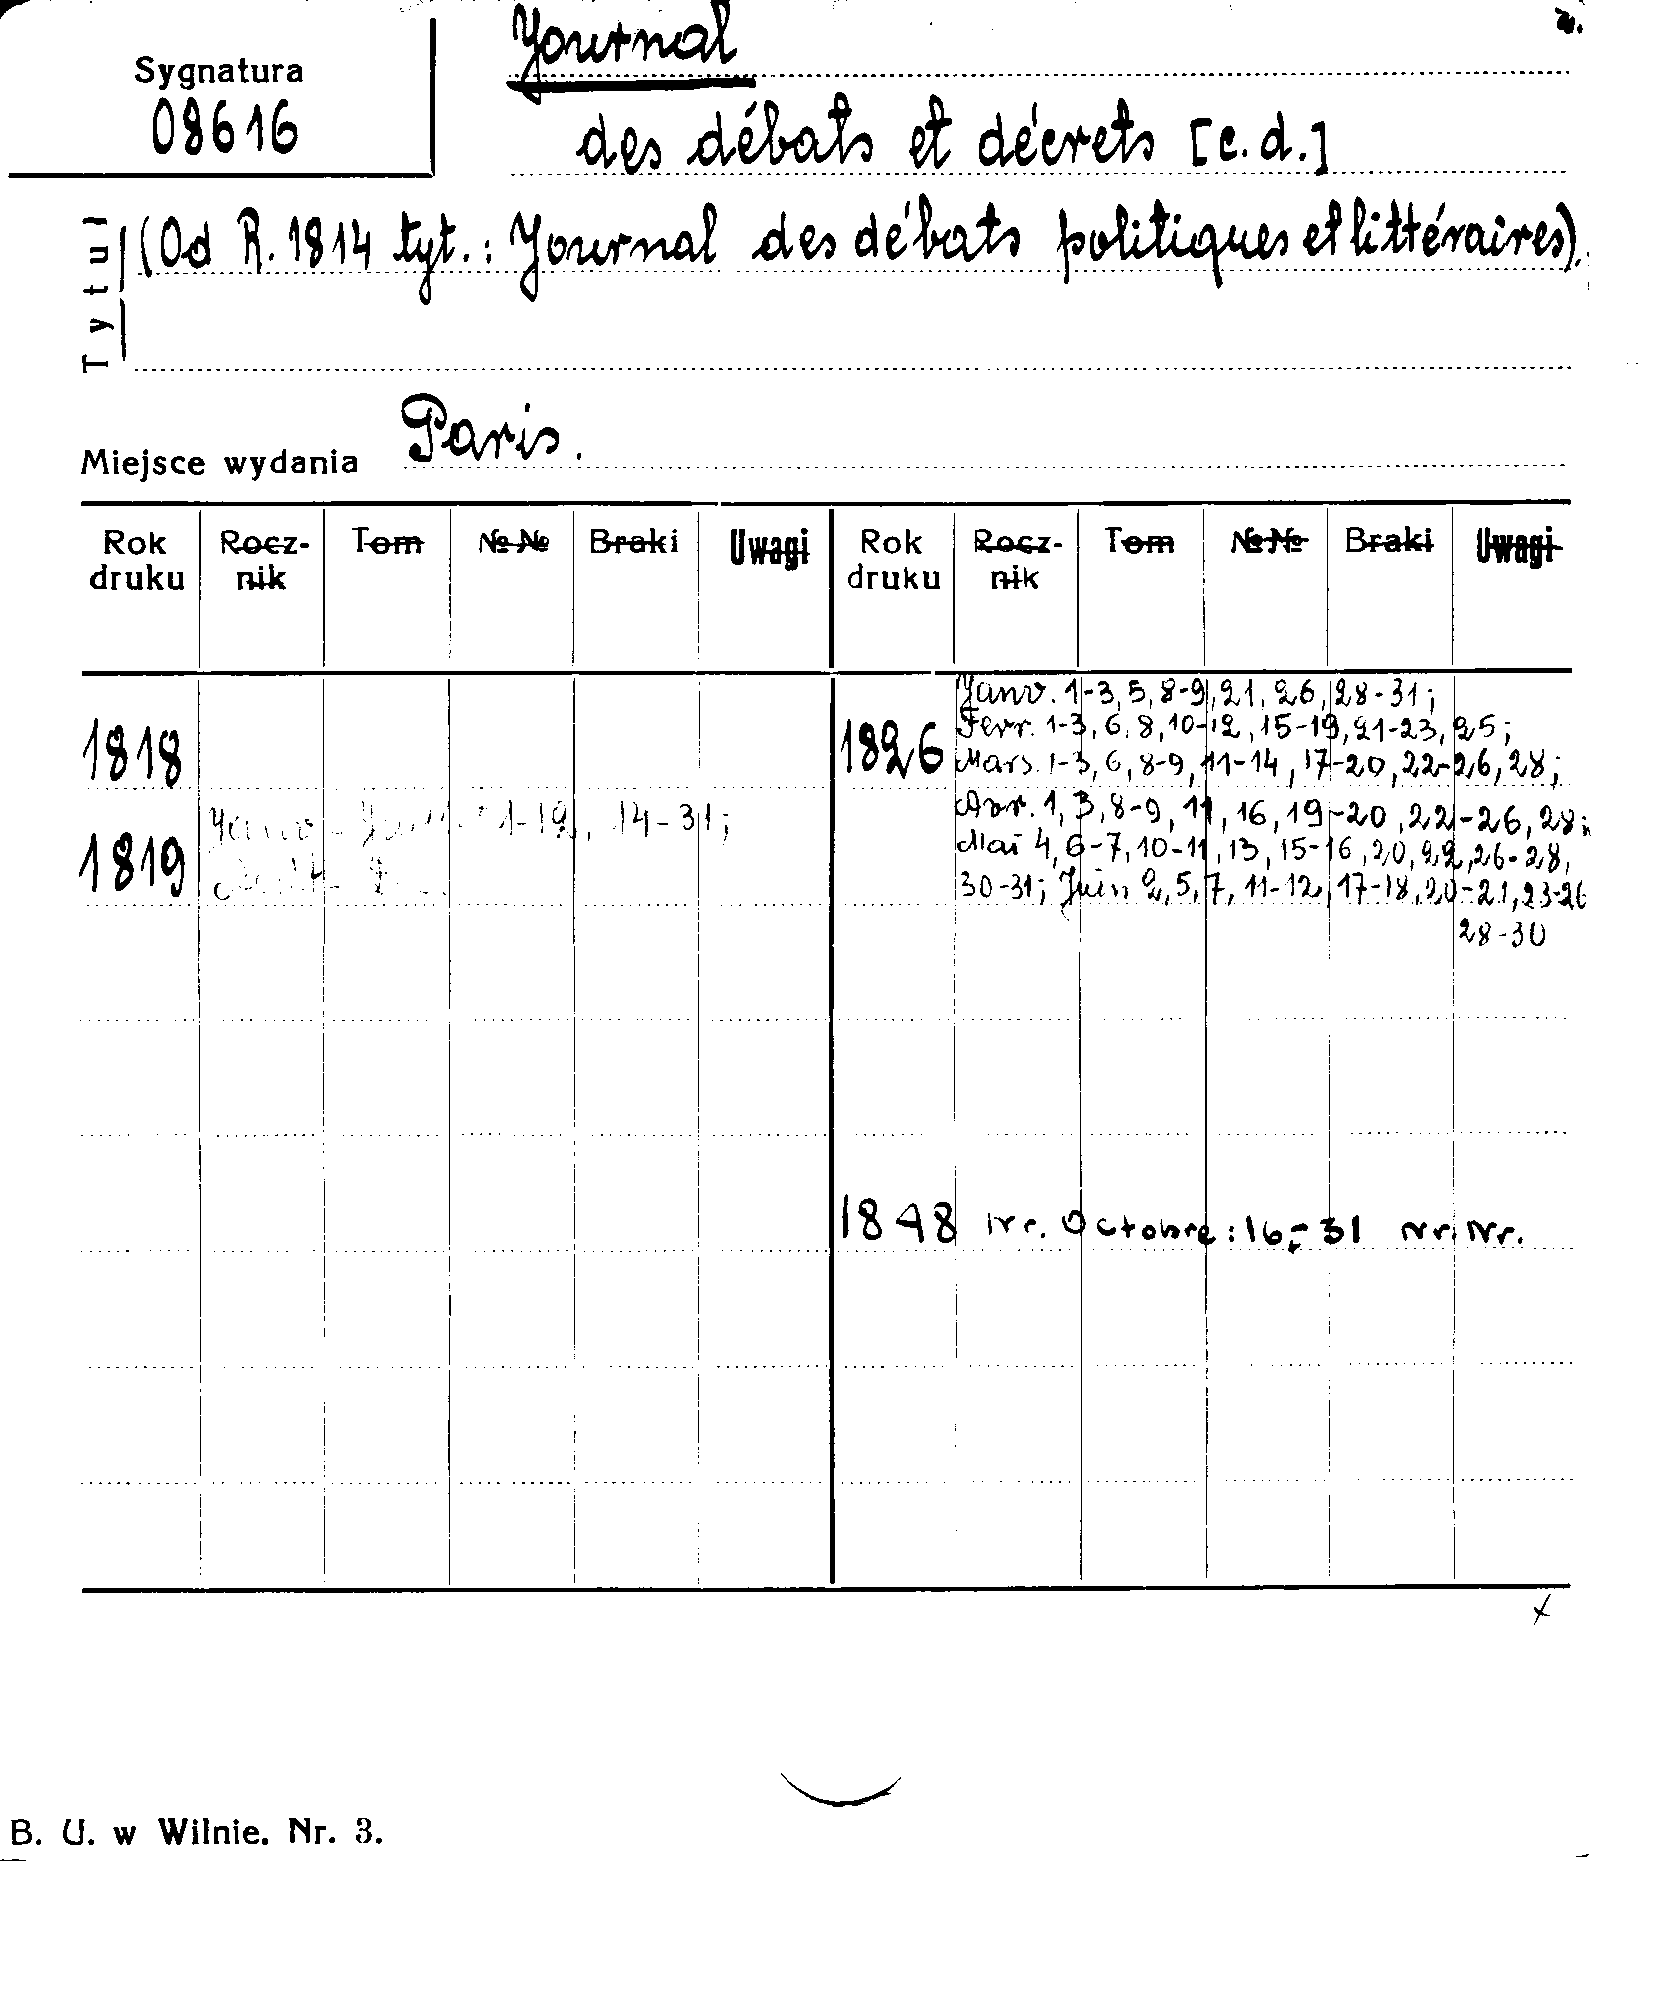 2.
Sygnatura
08616
Journal
des débats et décrets [c.d.]
Tytuł
(Od R. 1814 tyt.: Journal des débats politiques et littéraires).
Miejsce wydania Paris.
Rok druku Rocz-nik Tom №№ Braki Uwagi Rok druku Rocz-nik Tom №№ Braki Uwagi
1818
1819 Janv. 1-19, 14-31;
1826 Janv. 1-3, 5, 8-9, 21, 26, 28-31;
Fevr. 1-3, 6, 8, 10-12, 15-19, 21-23, 25;
Mars. 1-3, 6, 8-9, 11-14, 17-20, 22-26, 28;
Avr. 1, 3, 8-9, 11, 16, 19-20, 22-26, 28;
Mai 4, 6-7, 10-11, 13, 15-16, 20, 22, 26-28,
30-31; Juin 2, 5, 7, 11-12, 17-18, 20-21, 23-26
28-30
1848 Nr. Octobre: 16-31 Nr. Nr.
B. U. w Wilnie. Nr. 3.